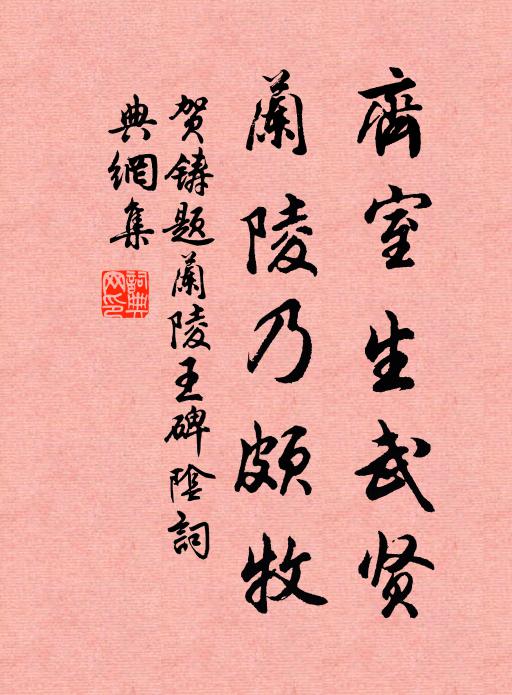 齊室生武贤
蘭陵乃頗牧
贺鑄题蘭陵王碑陰詞
典網集
詞典网印